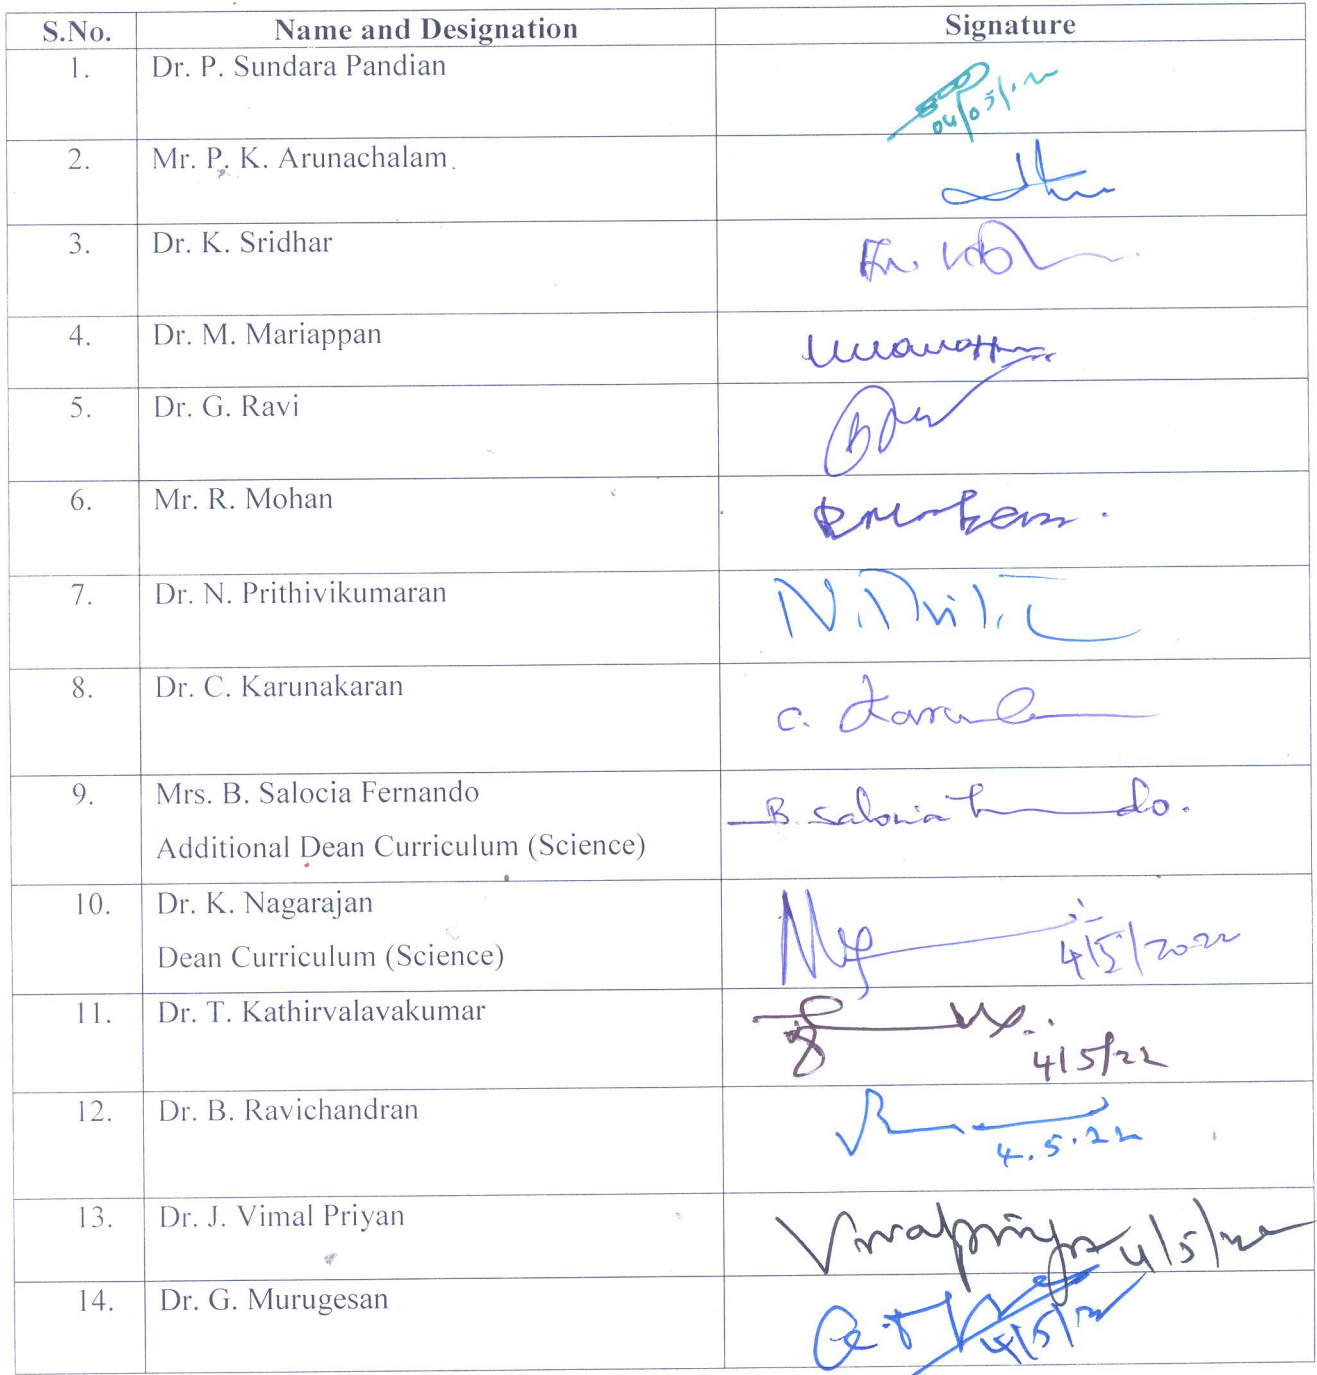 S.No. Name and Designation Signature
1. Dr. P. Sundara Pandian
04/05/22
2. Mr. P. K. Arunachalam
3. Dr. K. Sridhar
4. Dr. M. Mariappan
5. Dr. G. Ravi
6. Mr. R. Mohan
7. Dr. N. Prithivikumaran
8. Dr. C. Karunakaran
C.
9. Mrs. B. Salocia Fernando
B. Salocia
Additional Dean Curriculum (Science)
10. Dr. K. Nagarajan
Dean Curriculum (Science)
4/5/2022
11. Dr. T. Kathirvalavakumar
4/5/22
12. Dr. B. Ravichandran
4.5.22
13. Dr. J. Vimal Priyan
Vimalpriyan 4/5/22
14. Dr. G. Murugesan
4/5/22